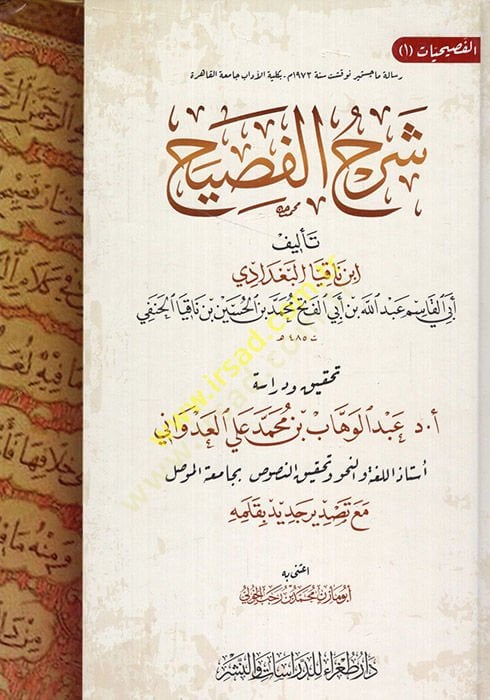 الفصيحيات (١)
رسالة ماجستير نوقشت سنة ١٩٧٣م - بكلية الآداب جامعة القاهرة
شرح الفصيح
تأليف
ابن ناقيا البغدادي
أبي القاسم عبد الله بن أبي الفتح محمد بن الحسين بن ناقيا الحنفي
ت ٤٨٥ هـ
تحقيق ودراسة
أ. د عبد الوهاب بن محمد علي العدواني
أستاذ اللغة والنحو وتحقيق النصوص بجامعة الموصل
مع تصدير جديد بقلمه
اعتنى به
أبو مازن محمد بن رجب الخولي
دار طغراء للدراسات والنشر
www.irsad.com.tr